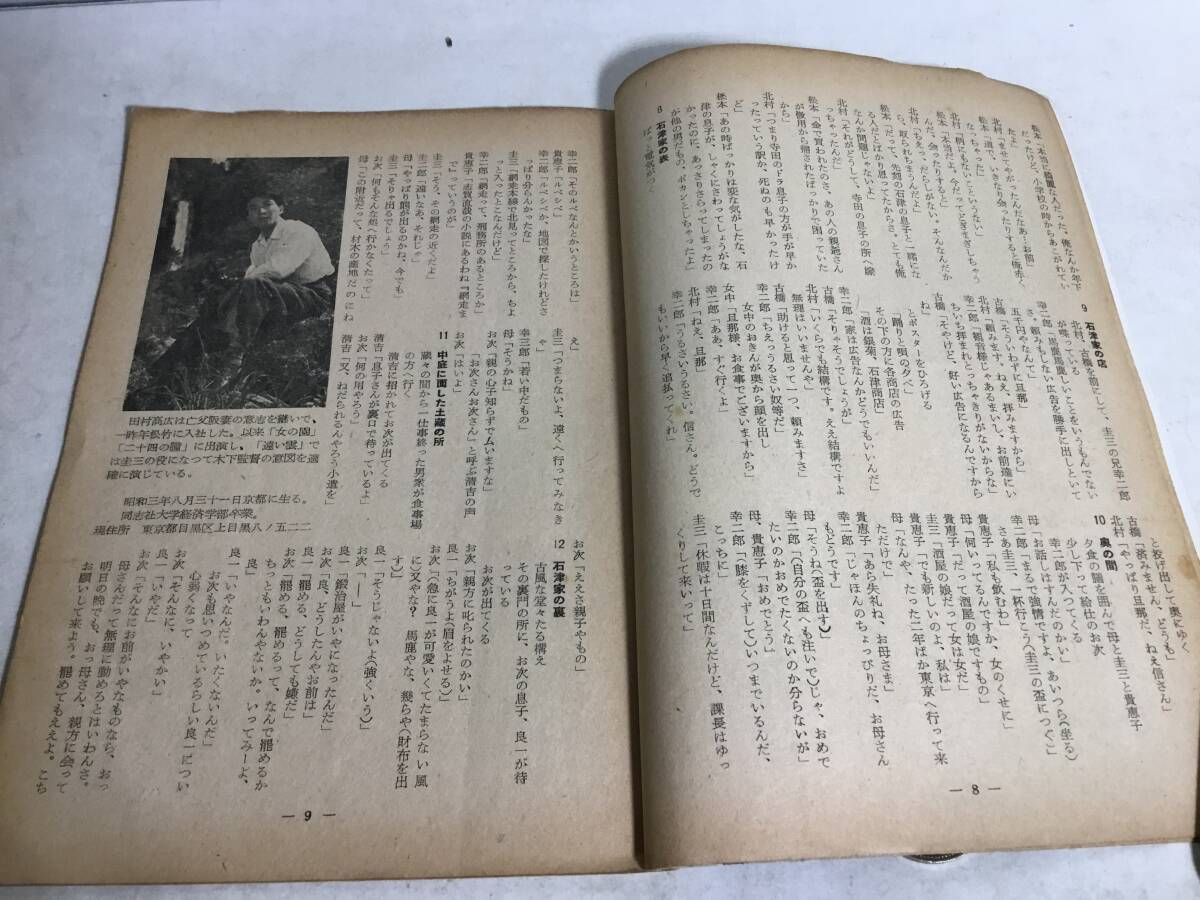 松本「本当に綺麗な人だった、俺なんか年下
だったけど、小学校の時からあこがれてい
たよ」
北村「ませてやがったんだなあ…お前」
松本「道で、いきなり会ったりすると俺赤く
なっちゃった」
んだ、会ったりすると」
北村「ちえっ、だらしがない。そんなんだか
ら、取られちまうんだよ」
松本「だって、先刻の石津の息子と一緒にな
る人だとばかり思ってたからさ。とても俺
なんか問題じゃないよ」
北村「それがどうして、寺田の息子の所へ嫁
っちゃったんだ」
松本「金で買われたのさ、あの人の親爺さん
が徴用から帰されたばっかりで困っていた
から」
北村「つまり寺田のドラ息子の方が手が早か
ったっていう訳か、死ぬのも早かったけ
ど」
松本「あの時ばっかりは変な気がしたな、石
津の息子が、しゃくにさわってしょうがな
かったのに、あっさりさらってしまったの
が他の男だもの、ポカンとしちゃったよ」
8 石津家の表
ぱっと電気がつく
9 石津家の店
北村、古橋を前にして、圭三の兄幸二郎
が喋っている
幸二郎「馬鹿馬鹿しいことをいうもんでない
さ、頼みもしない広告を勝手に出しといて
五千円やなんて」
古橋「そういわずに旦那」
北村「頼みます。ねえ、拝みますから」
幸二郎「観音様じゃあるまいし、お前達にい
ちいち拝まれとっちゃきりがないからな」
古橋「そやけど、好い広告になるんですから
ね」
とポスターをひろげる
「踊りと唄の夕べ」
その下の方に各商店の広告
「酒は銀菊、石津商店」
幸二郎「家は広告なんかどうでもいいんだ」
古橋「そりゃそうでしょうが」
北村「いくらでも結構です。ええ結構ですよ
無理はいいませんから」
古橋「助けると思って一つ、頼みますさ」
幸二郎「ちえっうるさい奴等だ」
女中のおきんが奥から顔を出し
女中「旦那様、お食事でございますから」
幸二郎「ああ、すぐ行くよ」
北村「ねえ、旦那」
幸二郎「うるさいうるさい。信さん。どうで
もいいから早く追払ってくれ」
と投げ出して奥にゆく
古橋「済みません、どうも」
北村「やっぱり旦那だ、ねえ信さん」
10 奥の間
夕食の膳を囲んで母と圭三と貴恵子
少し下って給仕のお次
幸二郎が入ってくる
母「お話しはすんだのかい」
幸二郎「まるで強情ですよ、あいつら(坐る)
さあ圭三、一杯行こう(圭三の盃につぐ)」
貴恵子「私も飲むわ」
母「何いってるんですか、女のくせに」
貴恵子「だって酒屋の娘ですもの」
圭三「酒屋の娘だって女は女だ」
貴恵子「でも新しいのよ、私は」
母「なんや、たった二年ばか東京へ行って来
ただけで」
貴恵子「あら失礼ね、お母さま」
幸二郎「じゃほんのちょっぴりだ、お母さん
もどうです」
母「そうね(盃を出す)
幸二郎(自分の盃へも注いで)じゃ、おめで
たいのかおめでたくないのか分らないが」
母、貴恵子「おめでとう」
幸二郎「膝をくずして)いつまでいるんだ、
こっちに」
圭三「休暇は十日間なんだけど、課長はゆっ
くりして来いって」
— 8 —
幸二郎「そのルベなんとかいうところは」
貴恵子「ルベシベ」
幸二郎「ルベシベか、地図で探したけれどさ
っぱり分らんかったな」
圭三「網走本線で北見ってところから、ちょ
っと入ったとこなんだけど」
幸二郎「網走って、刑務所のあるところか」
貴恵子「志賀直哉の小説にあるわね『網走ま
で』っていうのが」
圭三「そう、その網走の近くだよ」
幸二郎「遠いなあ、それじゃ」
母「やっぱり熊が出るのかね、今でも」
圭三「そりゃ出るでしょう」
お次「何もそんな処へ行かなくたって」
母「この附近だって、材木の産地だのにね
え」
圭三「つまらないよ、遠くへ行ってみなき
ゃ」
幸三郎「若い中だもの」
母「そうかね」
お次「親の心子知らずでムいますな」
「お次さんお次さん」と呼ぶ清吉の声
お次「はいよ」
11 中庭に面した土蔵の所
蔵々の間から一仕事終った男衆が食事場
の方へ行く
清吉に招かれてお次が出てくる
清吉「息子さんが裏口で待っているよ」
お次「何の用やろう」
清吉「又、ねだられるんやろ、小遣を」
お次「ええさ親子やもの」
12 石津家の裏
古風な堂々たる構え
その裏門の所に、お次の息子、良一が待
っている
お次が出てくる
お次「親方に叱られたのかい」
良一「ちがうよ(眉をよせる)
お次「(急に良一が可愛いくてたまらない風
に)又やな?馬鹿やな、幾らや(財布を出
す)」
良一「そうじゃないよ(強くいう)
お次「――」
良一「鍛冶屋がいやになったんだ」
お次「良、どうしたんやお前は」
良一「罷める、どうしても嫌だ」
お次「罷める、罷めるって、なんで罷めるか
ちっともいわんやないか。いってみーよ、
良一「いやなんだ。いたくないんだ」
お次も思いつめているらしい良一につい
心弱くなって
お次「そんなに、いやかい」
良一「いやだ」
お次「そんなにお前がいやなものなら、おっ
母さんだって無理に勤めろとはいわんさ。
明日の晩でも、おっ母さん、親方に会って
お願いして来よう。罷めてもええよ。こち
田村高広は亡父阪妻の意志を継いで、
一昨年松竹に入社した。以来「女の園」
「二十四の瞳」に出演し、「遠い雲」で
は圭三の役になつて木下監督の意図を適
確に演じている。
昭和三年八月三十一日京都に生る。
同志社大学経済学部卒業。
現住所 東京都目黒区上目黒八ノ五二二
— 9 —